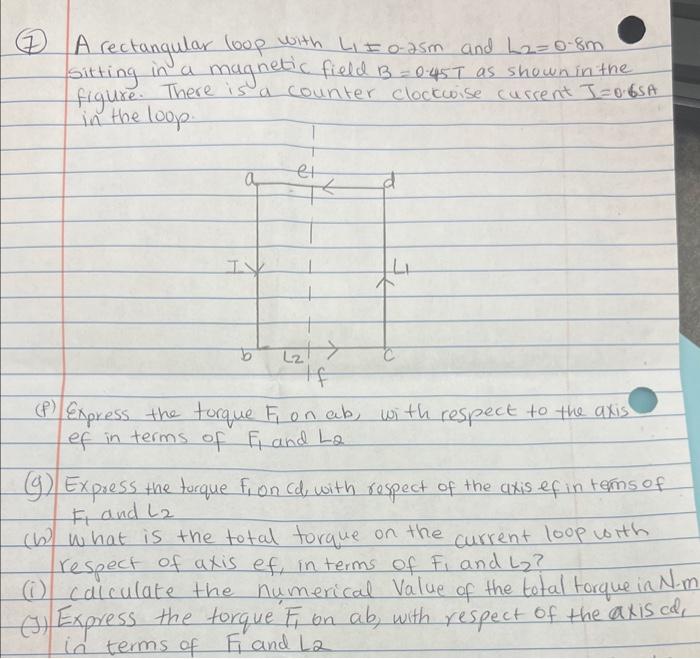 7 A rectangular loop with L1 = 0.25m and L2=0.8m
sitting in a magnetic field B = 0.45T as shown in the
figure. There is a counter clockwise current I=0.65A
in the loop.
a e d
I L1
b L2 c
f
(f) Express the torque F1 on ab, with respect to the axis
ef in terms of F1 and L2
(g) Express the torque F1 on cd, with respect of the axis ef in terms of
F1 and L2
(h) what is the total torque on the current loop with
respect of axis ef, in terms of F1 and L2?
(i) calculate the numerical Value of the total torque in N.m
(J) Express the torque F1 on ab, with respect of the axis cd,
in terms of F1 and L2